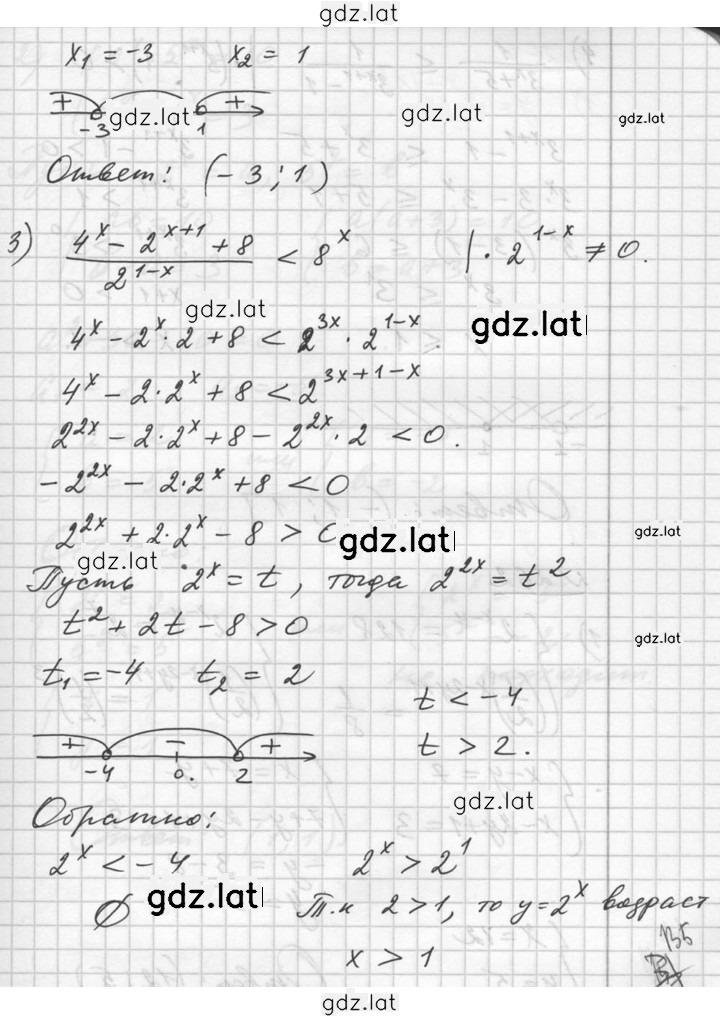 gdz.lat
x₁ = -3    x₂ = 1
+    +
-3    1
gdz.lat    gdz.lat    gdz.lat
Ответ: (-3; 1)
3) (4^x - 2^(x+1) + 8) / 2^(1-x) < 8^x    | · 2^(1-x) ≠ 0.
gdz.lat    gdz.lat
4^x - 2^x · 2 + 8 < 2^(3x) · 2^(1-x).
4^x - 2 · 2^x + 8 < 2^(3x+1-x)
2^(2x) - 2 · 2^x + 8 - 2^(2x) · 2 < 0.
-2^(2x) - 2 · 2^x + 8 < 0
2^(2x) + 2 · 2^x - 8 > 0
gdz.lat    gdz.lat    gdz.lat
Пусть 2^x = t, тогда 2^(2x) = t²
t² + 2t - 8 > 0
gdz.lat
t₁ = -4    t₂ = 2
t < -4
+    -    +
t > 2.
-4    0.    2
gdz.lat
Обратно:
2^x < -4    2^x > 2^1
∅    gdz.lat    Т.к 2 > 1, то y = 2^x возраст
x > 1
135
gdz.lat